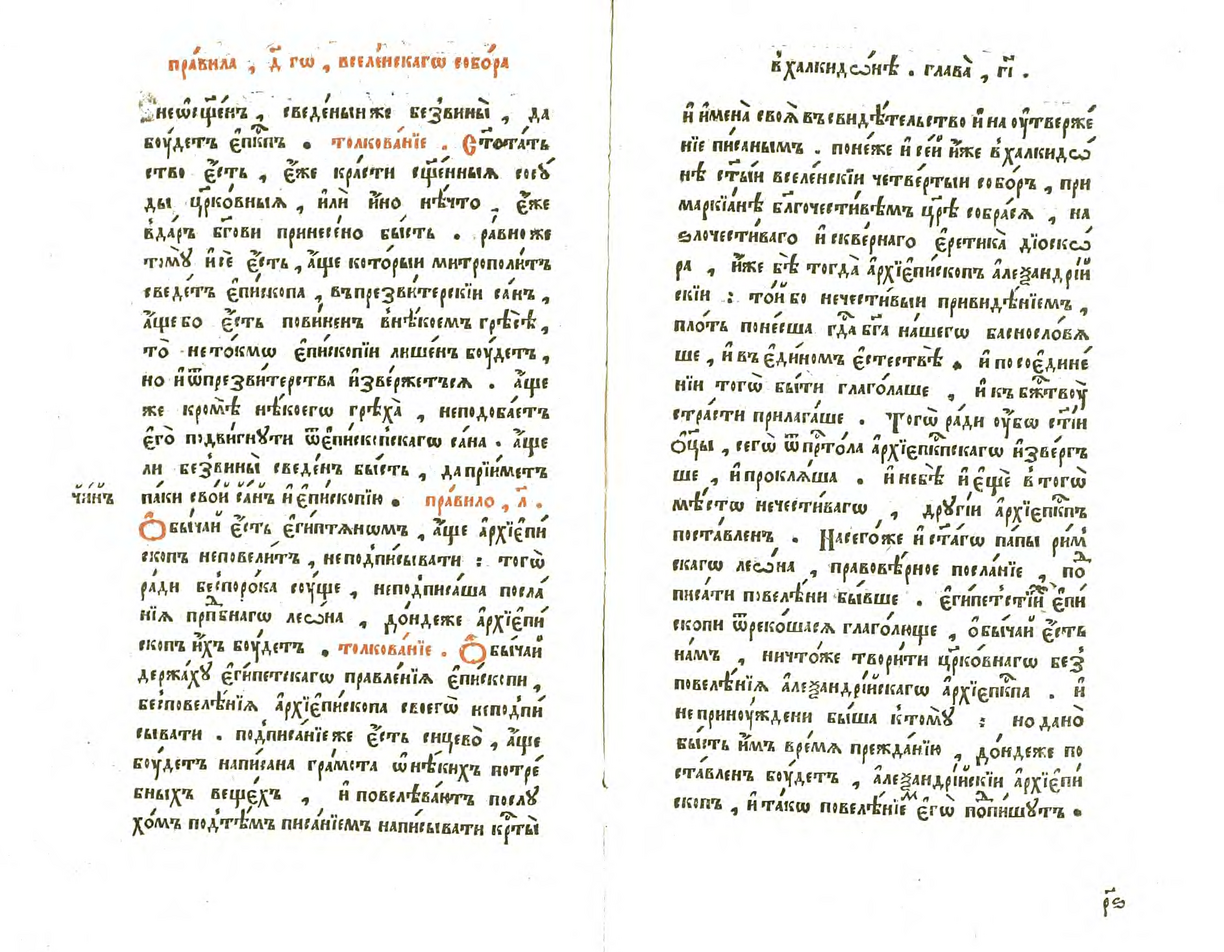 пра́вила , д҃ гѡ , вселе́нскагѡ собо́ра
неѡсщ҃е́нъ , сведе́ныиже без̾вины̀ , да
бꙋ́детъ є҆пк҃пъ . толкова́нїе . Ст҃ота́тъ
ство є҆́сть , є҆́же кра́сти сщ҃е́нныѧ сосꙋ́
ды цр҃ко́вныѧ , и҆лѝ и҆́но нѣ́что , є҆́же
в̾да́ръ бг҃ови принесе́но бы́сть . ра́вноже
томꙋ̀ и҆сѐ є҆́сть , а҆́ще которыи митрополи́тъ
сведе́тъ є҆пи́скопа , въпрезви́терскїи са́нъ ,
а҆́ще бо є҆́сть пови́ненъ в̾нѣ́коемъ грѣсѣ̀ ,
то̀ нето́кмѡ є҆пископїи лише́нъ бꙋ́детъ ,
но и҆ѿпрезви́терства и҆зве́ржетъсѧ . а҆́ще
же кромѣ̀ нѣ́коегѡ грѣха̀ , неподоба́етъ
є҆го̀ подви́гнꙋти ѿє҆пи́скопскагѡ са́на . а҆́ще
ли без̾вины̀ сведе́нъ бы́сть , да прїи́метъ
чи́нъ
па́ки сво́й са́нъ и҆ є҆писко́пїю . пра́вило , л҃ .
Ѻ҆бы́чай є҆́сть є҆гиптѧ́нѡмъ , а҆́ще а҆рхїє҆пи́
скопъ неповели́тъ , непод̾пи́сывати : тогѡ̀
ра́ди беспоро́ка сꙋ́ще , неподписа́ша посла́
нїѧ прпⷣбнагѡ леѡ́на , до́ндеже а҆рхїє҆пи́
скопъ и҆́хъ бꙋ́детъ . толкова́нїе . Ѻ҆бы́чаи
держа́хꙋ є҆ги́петскагѡ правле́нїѧ є҆пи́скопи ,
бесповелѣ́нїѧ а҆рхїє҆пи́скопа своегѡ̀ неподпи́
сывати . подписа́нїеже є҆́сть сицево̀ , а҆́ще
бꙋ́детъ напи́сана гра́мота ѡ҆нѣ́кихъ потре́
бныхъ веще́хъ , и҆ повелѣва́ютъ послꙋ́
хомъ под̾тѣ́мъ писа́нїемъ напи́сывати крⷭ҇ты̀
в̾халкидѡ́нѣ . глава̀ , гі҃ .
и҆ и҆мена̀ своѧ̀ въсвидѣ́тельство и҆ на ѹ҆тверже́
нїе писаннымъ . поне́же и҆ се́и и҆́же в̾халкидѡ́
нѣ ст҃ы́и вселе́нскїи четве́ртыи собо́ръ , при
маркїа́нѣ бл҃гочести́вѣмъ цр҃ѣ̀ собра́сѧ , на
ѕлочести́ваго и҆ скве́рнаго є҆ретика̀ дїоскѡ́
ра , и҆́же бѣ̀ тогда̀ а҆рхїє҆пи́скопъ а҆леѯандрі́й
скїи : то́й бо нечести́выи привидѣ́нїемъ ,
пло́ть поне́сша гдⷭ҇а бг҃а на́шегѡ баснослов́ѧ
ше , и҆ въ є҆ди́номъ є҆стествѣ̀ . и҆ по соедине́
нїи тогѡ̀ бы́ти глаго́лаше , и҆ къ бж҃твꙋ̀
стра́сти прилага́ше . Тогѡ̀ ра́ди ѹ҆́бѡ ст҃і́и
ѻ҆ц҃ы , сегѡ̀ ѿ прⷭ҇то́ла а҆рхїє҆пк҃пскагѡ и҆зве́ргъ
ше , и҆ проклѧ́ша . и҆ небѣ̀ и҆ є҆щѐ в̾тогѡ̀
мѣ́сто нечести́вагѡ , дрꙋгі́и а҆рхїє҆пк҃пъ
поста́вленъ . Насего́же и҆ ст҃а́гѡ папы ри́м
скагѡ леѡ́на , правовѣ́рное посла́нїе , поⷣ
писа́ти повелѣ́ни бы́вше . є҆ги́петстїи є҆пи́
скопи ѿреко́шасѧ глаго́люще , ѻ҆бы́чаи є҆́сть
на́мъ , ничто́же твори́ти цр҃ко́внагѡ без̾
повелѣ́нїѧ а҆леѯандрі́йскагѡ а҆рхїє҆пк҃па . и҆
не принꙋ́ждени бы́ша к̾томꙋ̀ : но дано̀
бы́сть и҆́мъ вре́мѧ прежда́нїю , до́ндеже по
ста́вленъ бꙋ́детъ , а҆леѯандрі́йскїи а҆рхїє҆пи́
скопъ , и҆ та́кѡ повелѣ́нїеⷨ є҆гѡ̀ поⷣпи́шꙋтъ .
рѕ҃